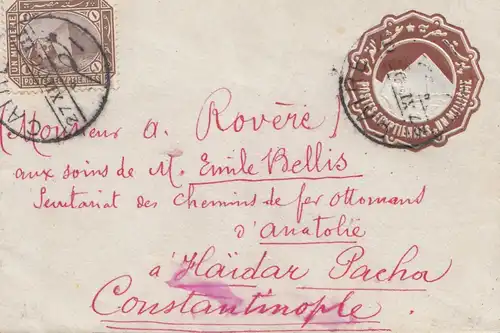 UN MILLIEME
POSTES EGYPTIENNES
POSTES EGYPTIENNES UN MILLIEME
Monsieur A. Rovère
aux soins de M. Emile Bellis
Secrétariat des Chemins de fer Ottomans
d'Anatolie
à Haïdar Pacha
Constantinople.